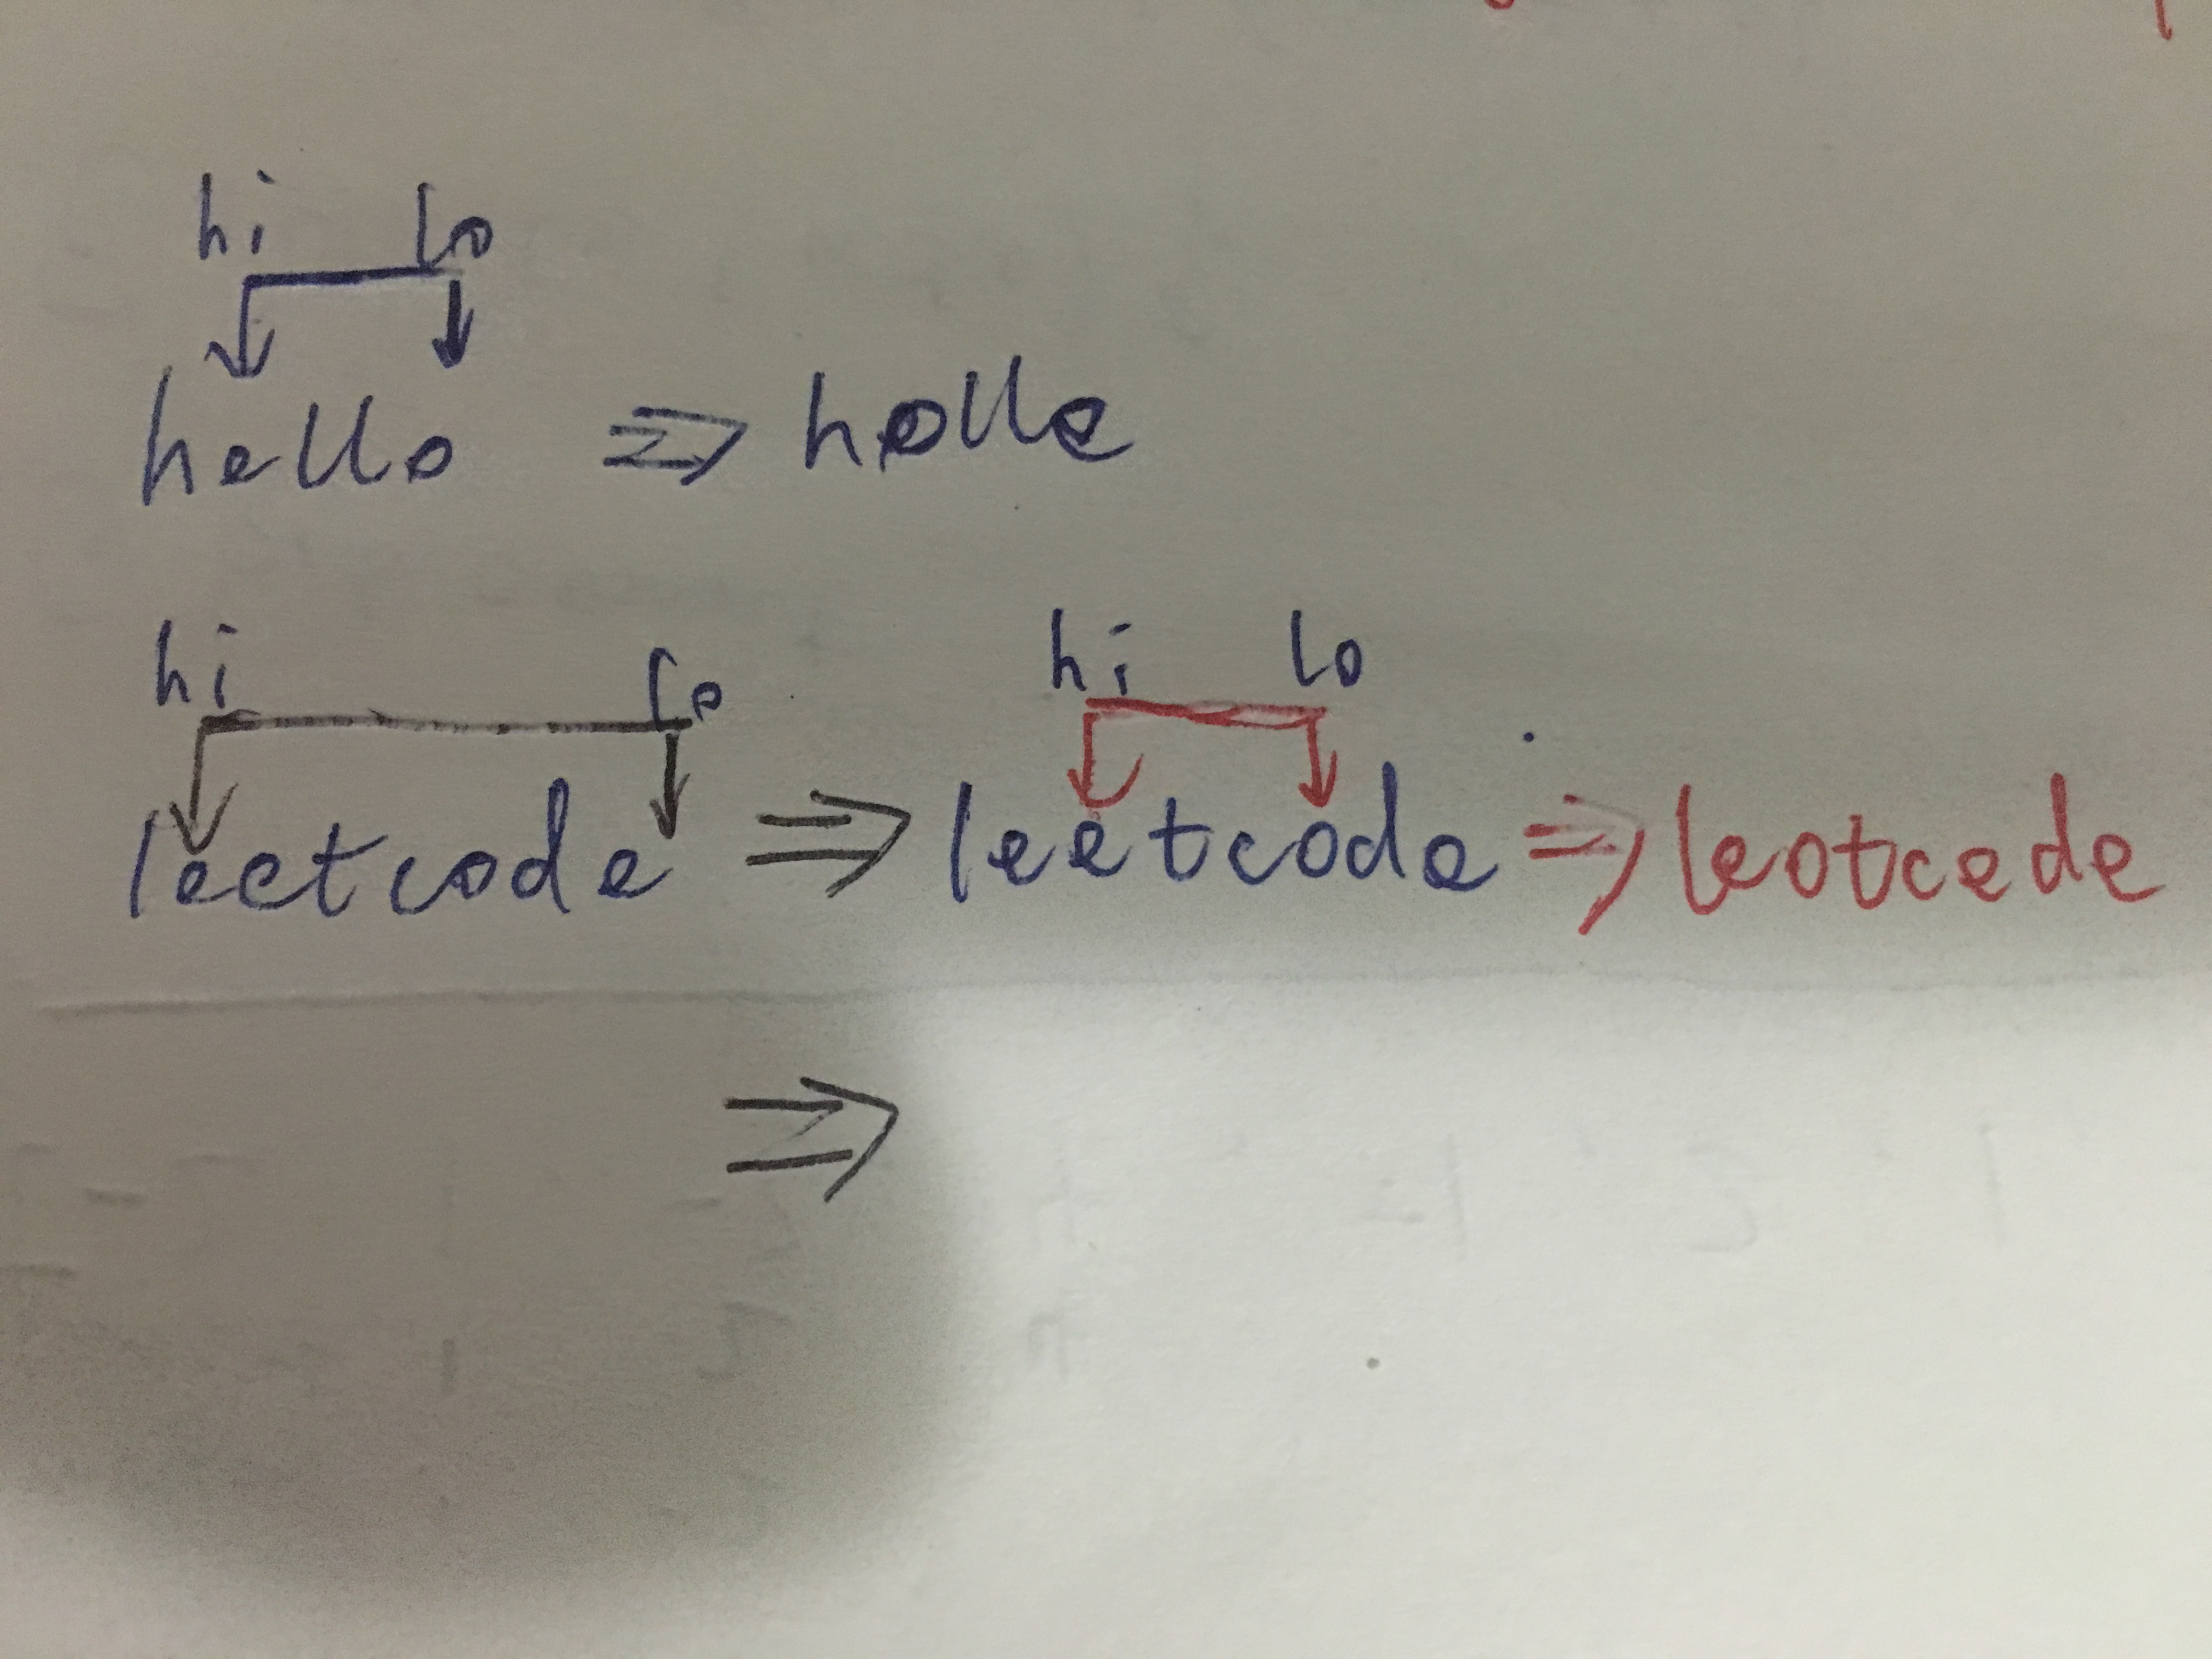 hi lo
hello ⇒ holle
hi lo hi lo
leetcode ⇒ leetcode ⇒ leotcede
⇒